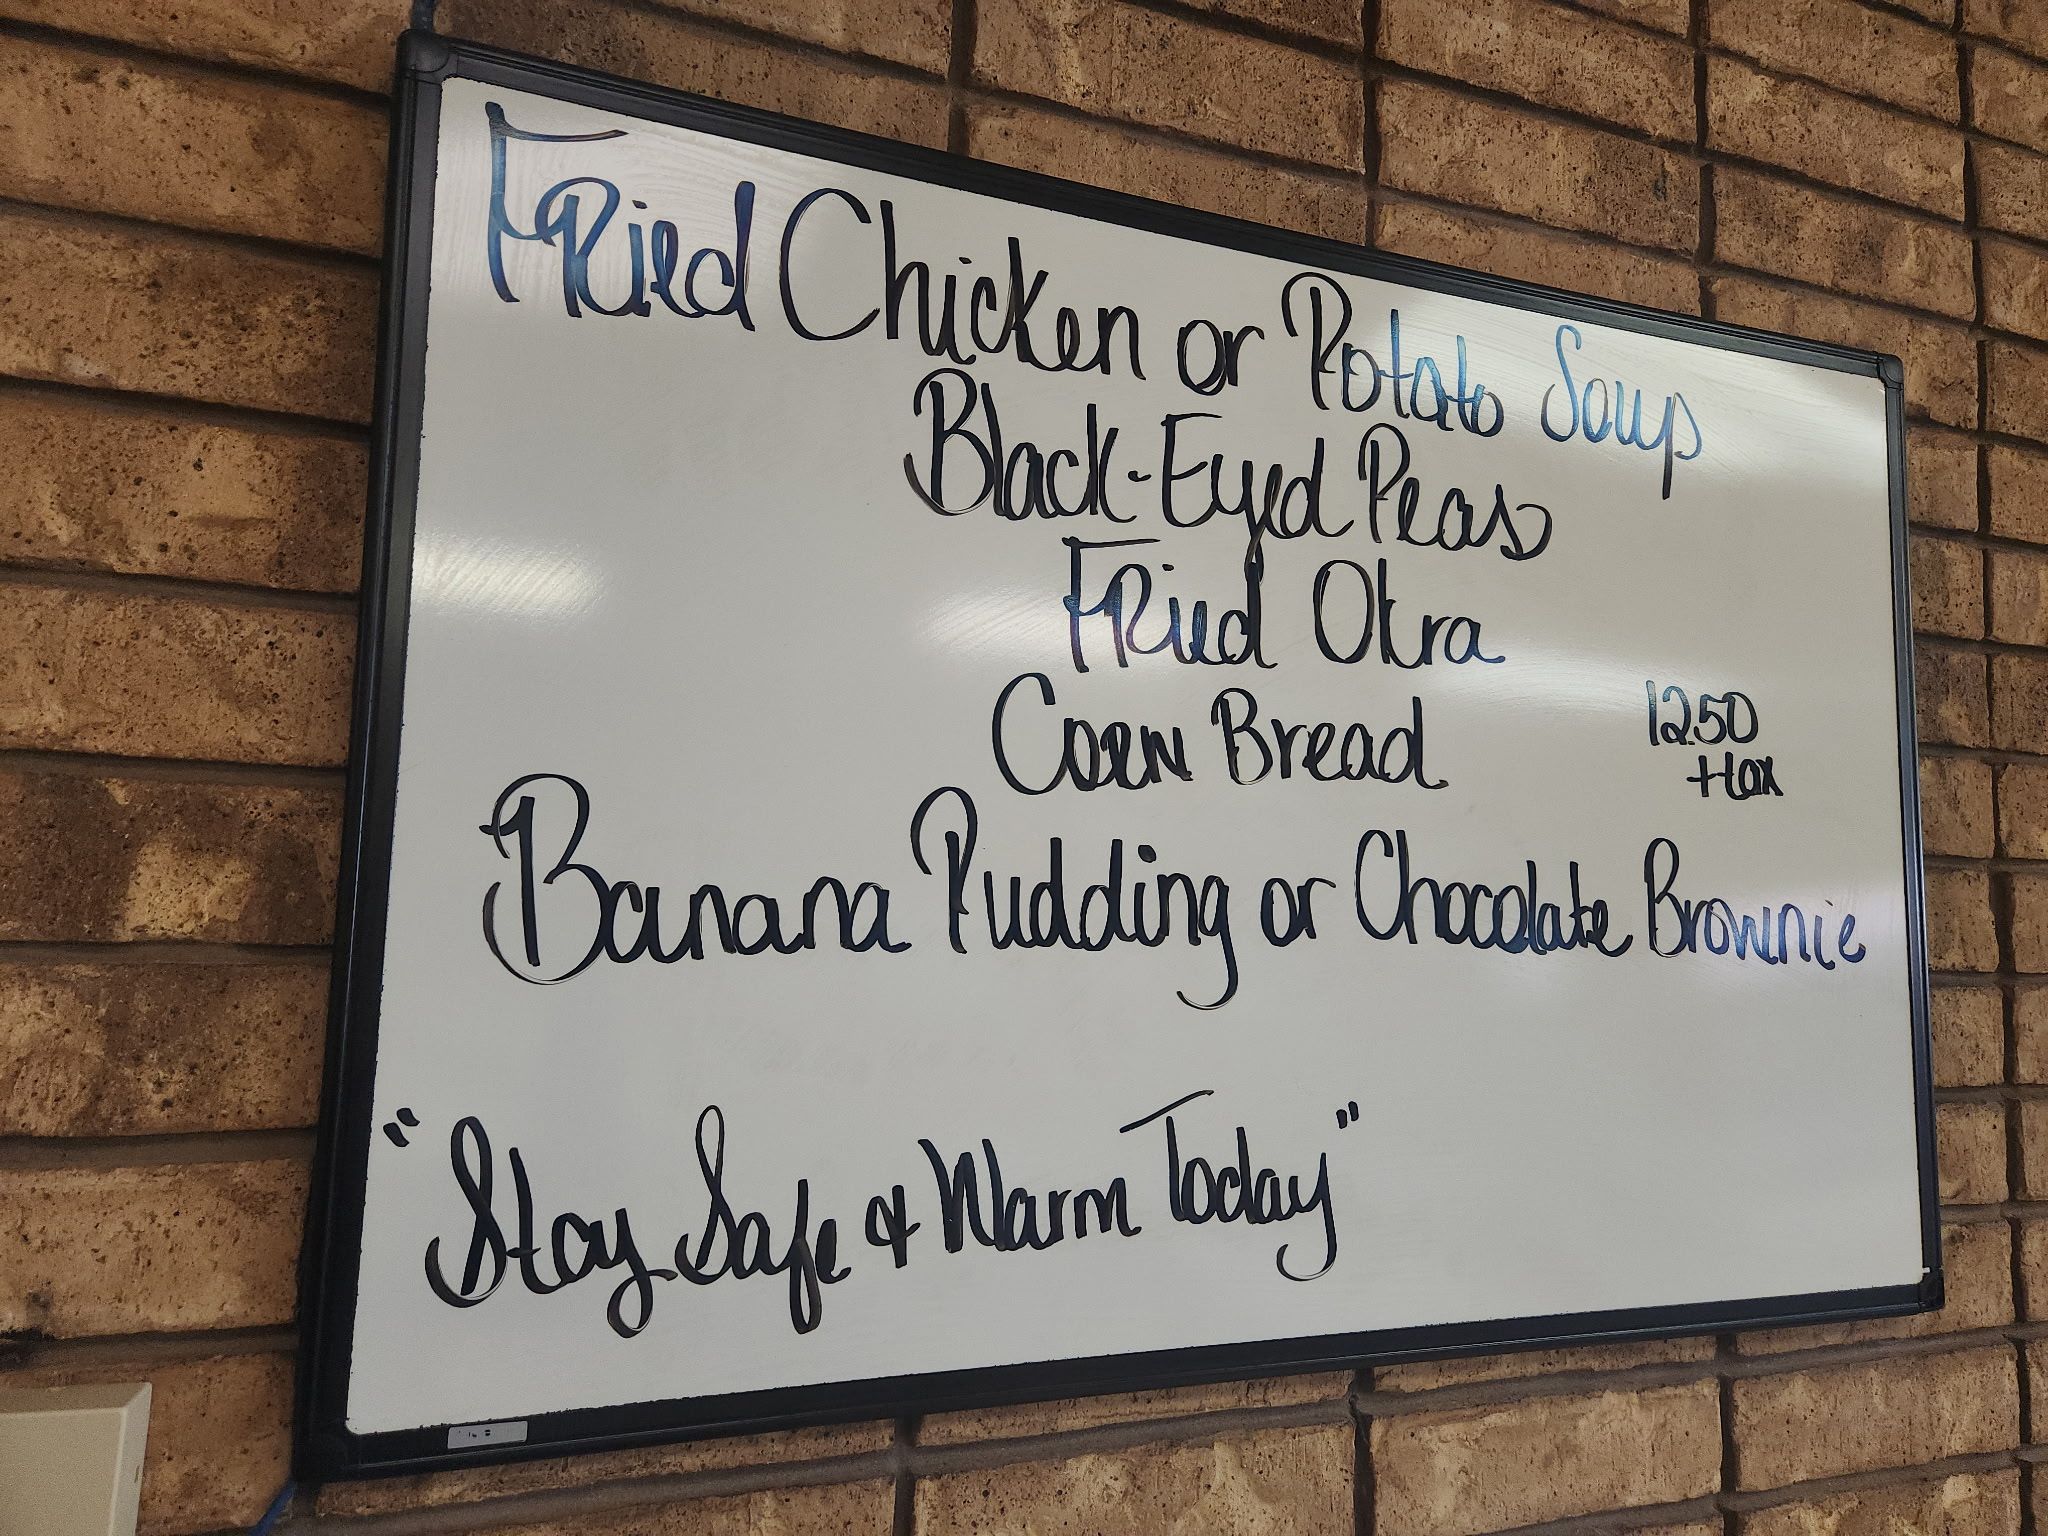 Fried Chicken or Potato Soup
Black-Eyed Peas
Fried Okra
Corn Bread
12.50
+tax
Banana Pudding or Chocolate Brownie
"Stay Safe & Warm Today"